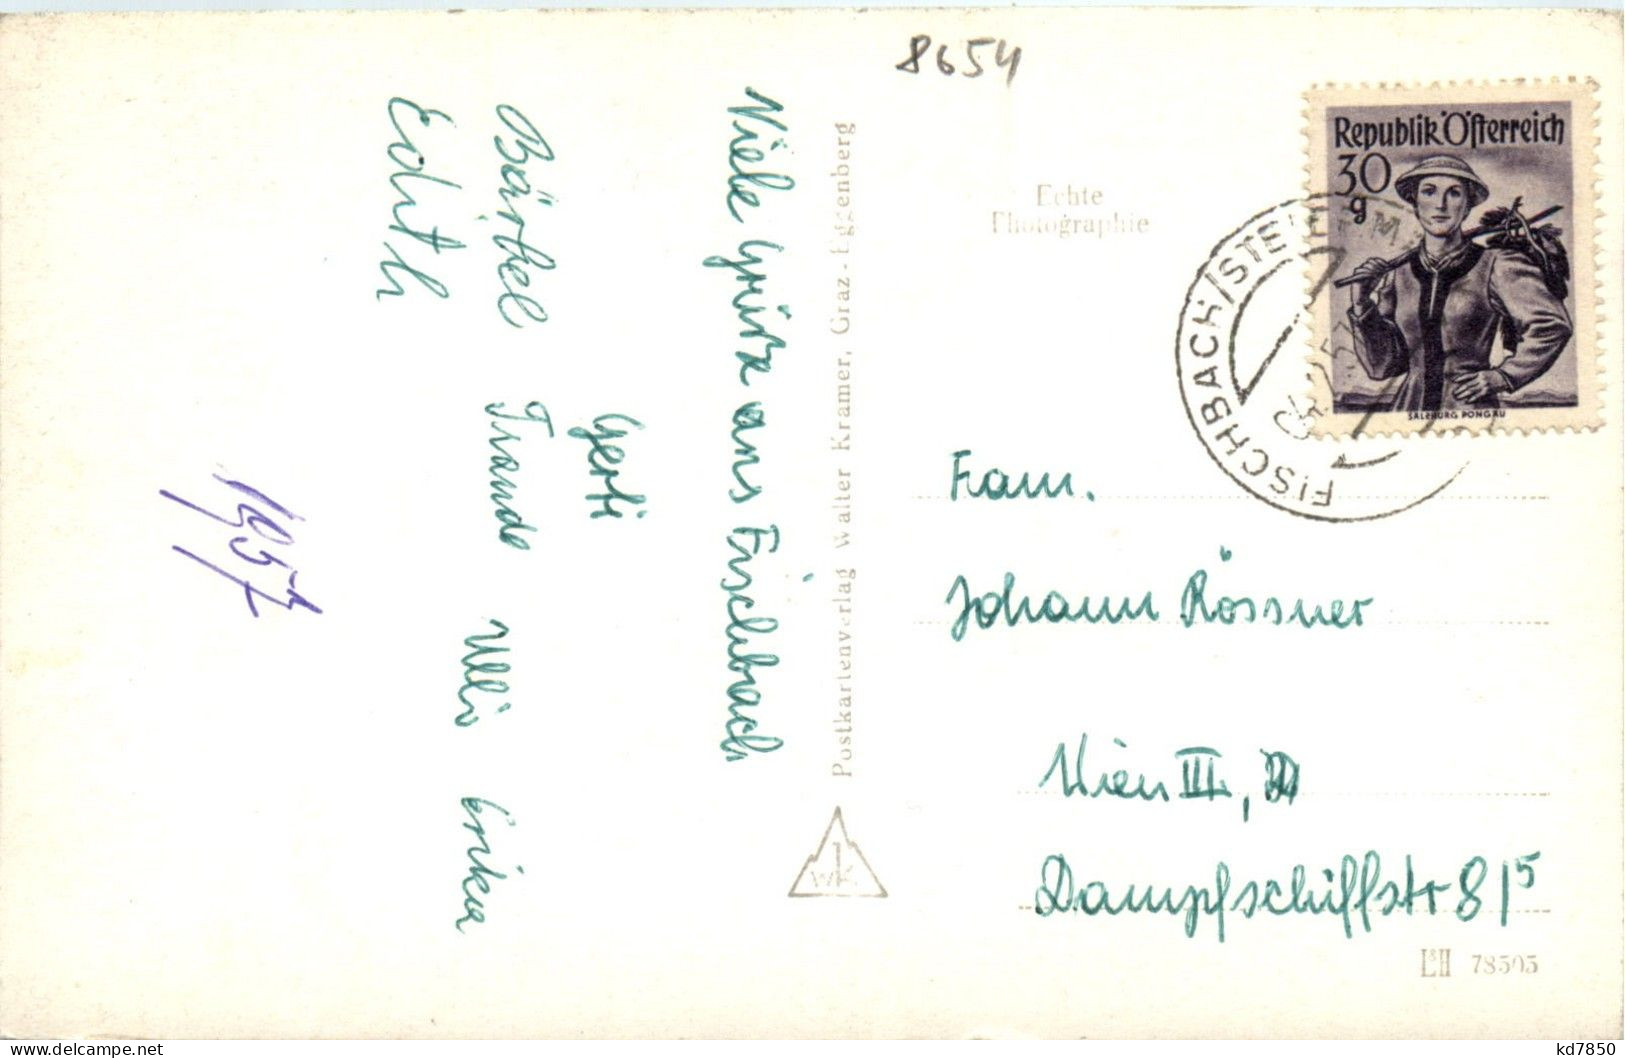 8654
Viele Grüße aus Fischbach
Gerti
Bärbel Traude Uli Erika
Edith
1957
Postkartenverlag Walter Kramer, Graz-Eggenberg
wk
Echte
Photographie
Republik Österreich
30
g
SALZBURG PONGAU
FISCHBACH/STEIERM
Fam.
Johann Rössner
Wien III,
Dampfschiffstr 8/5
L&H 78505
kd7850